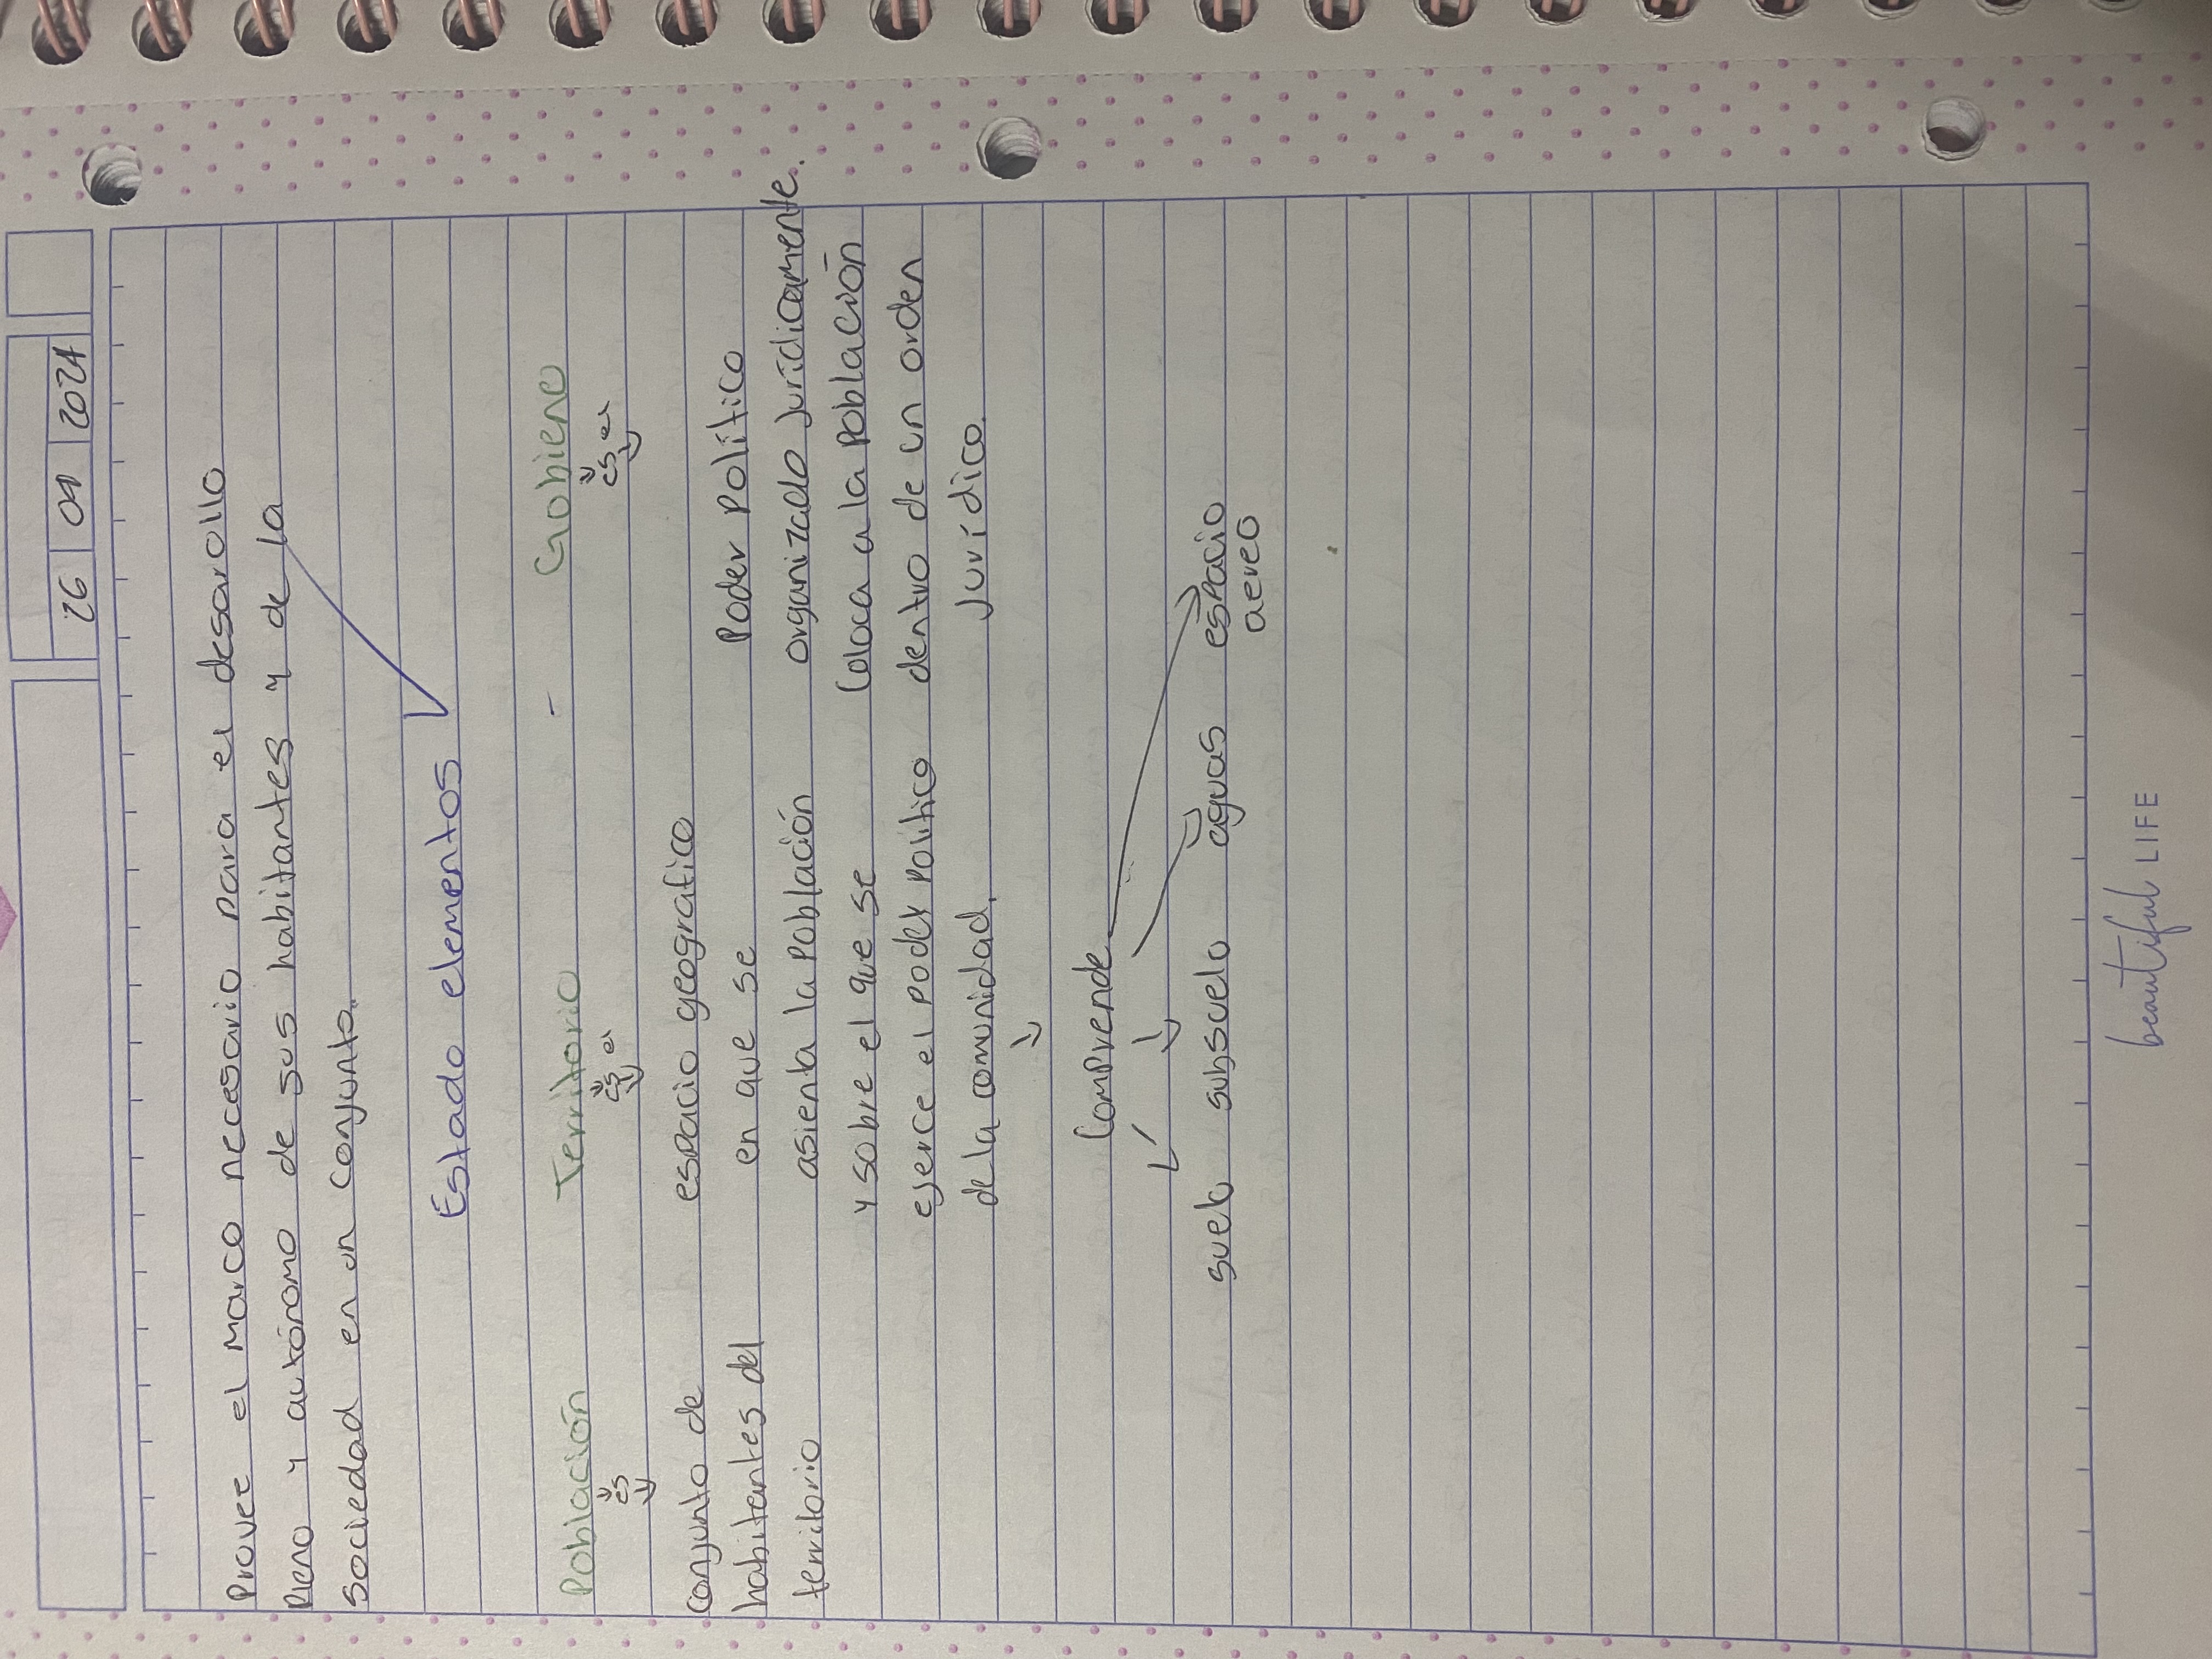 26 09 2024
Provee el marco necesario para el desarollo
Pleno y autónomo de sus habitantes y de la
sociedad en un conjunto.
Estado elementos
Población
es
conjunto de
habitantes del
territorio
Territorio
es el
espacio geografico
en que se
asienta la población
y sobre el que se
ejerce el poder político
de la comunidad.
Comprende
suelo subsuelo aguas espacio
aereo
- Gobierno
es el
Poder Político
organizado Jurídicamente.
Coloca a la población
dentro de un orden
Jurídico.
beautiful LIFE